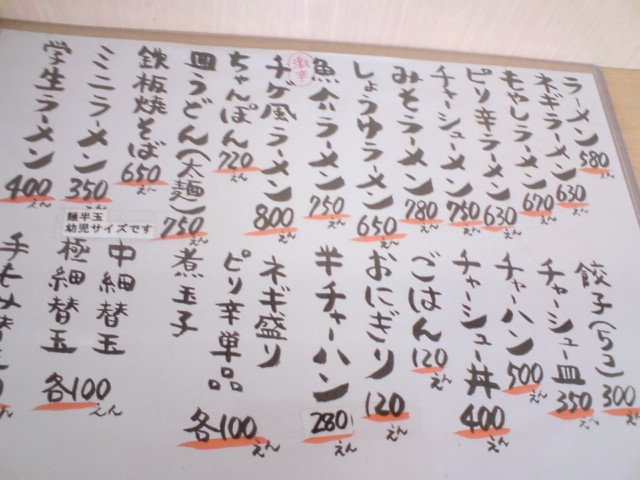 ラーメン 580
ネギラーメン 630
もやしラーメン 670えん
ピリ辛ラーメン 630えん
チャーシューメン 750えん
みそラーメン 780えん
しょうゆラーメン 650えん
魚介ラーメン 750えん
激辛
チゲ風ラーメン 800えん
ちゃんぽん 720えん
皿うどん(太麺) 750えん
鉄板焼そば 650えん
ミニラーメン 350えん
麺半玉
幼児サイズです
学生ラーメン 400えん
餃子(5コ) 300えん
チャーシュー皿 350えん
チャーハン 500えん
チャーシュー丼 400えん
ごはん 120えん
おにぎり 120えん
半チャーハン 280えん
ネギ盛り
ピリ辛単品
煮玉子
各100えん
中細替玉
極細替玉
各100えん